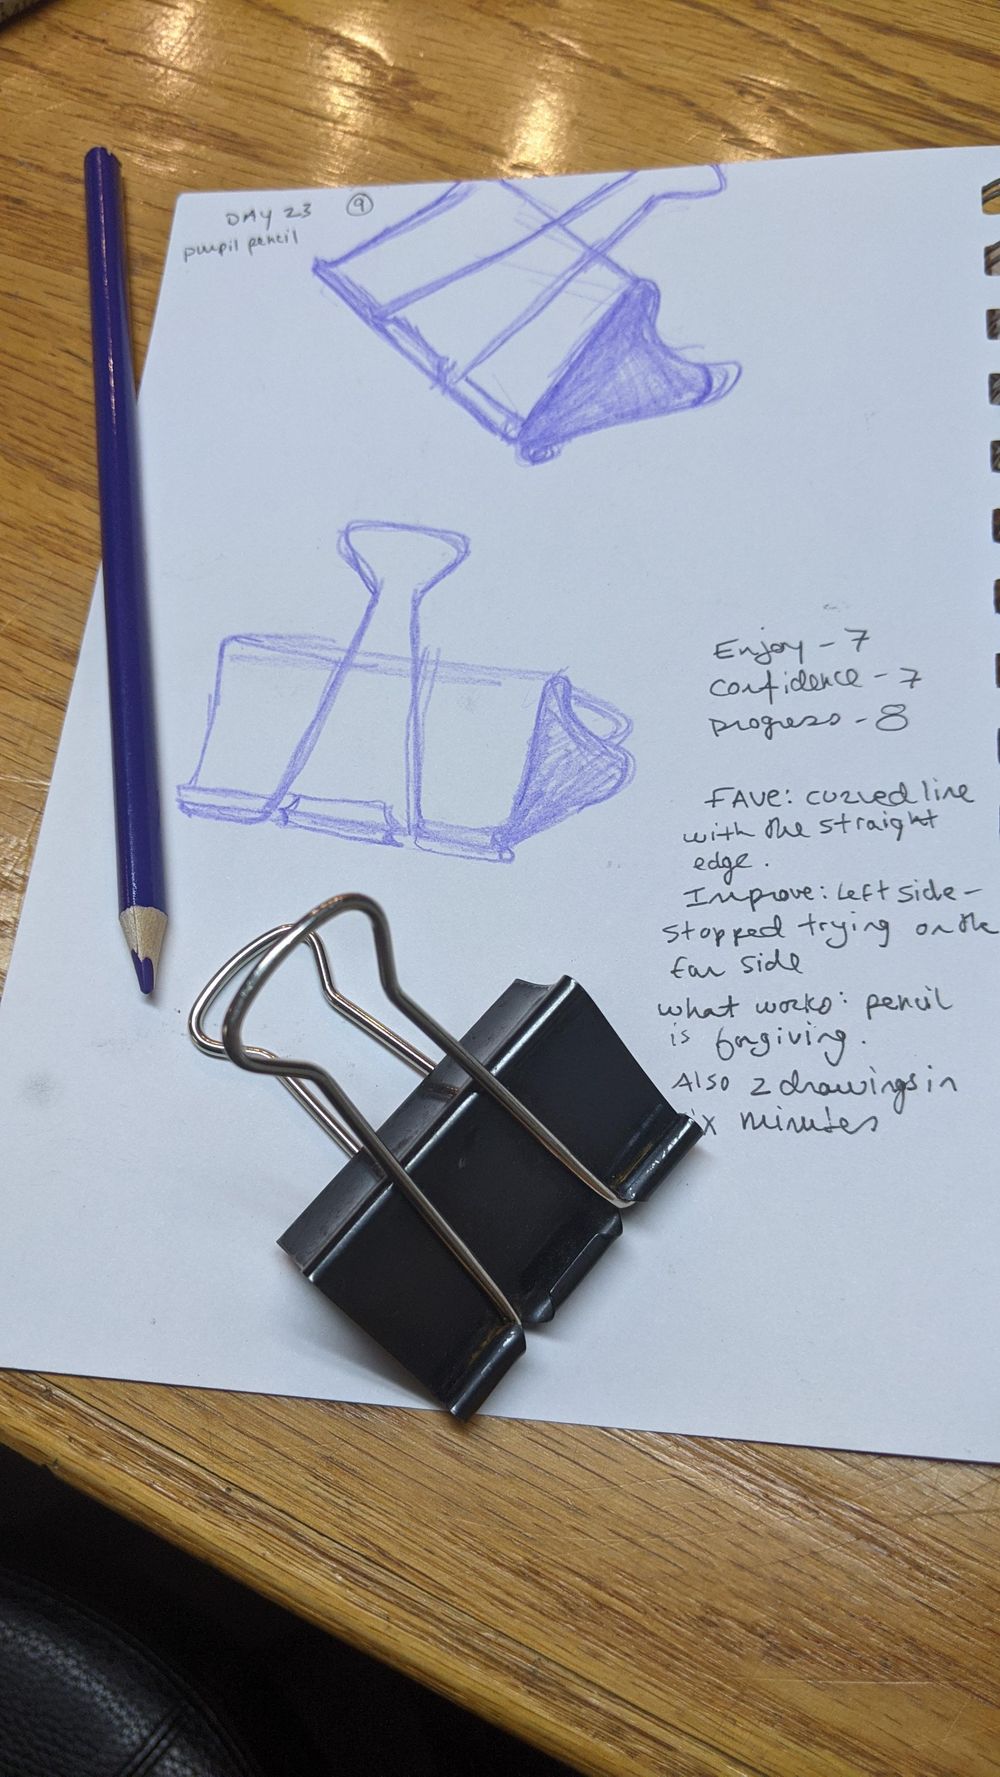 DAY 23 9
purpil pencil
Enjoy - 7
confidence - 7
progress - 8
FAVE: curved line
with the straight
edge.
Improve: Left side -
stopped trying on the
far side
what works: pencil
is forgiving.
Also 2 drawings in
ix minutes